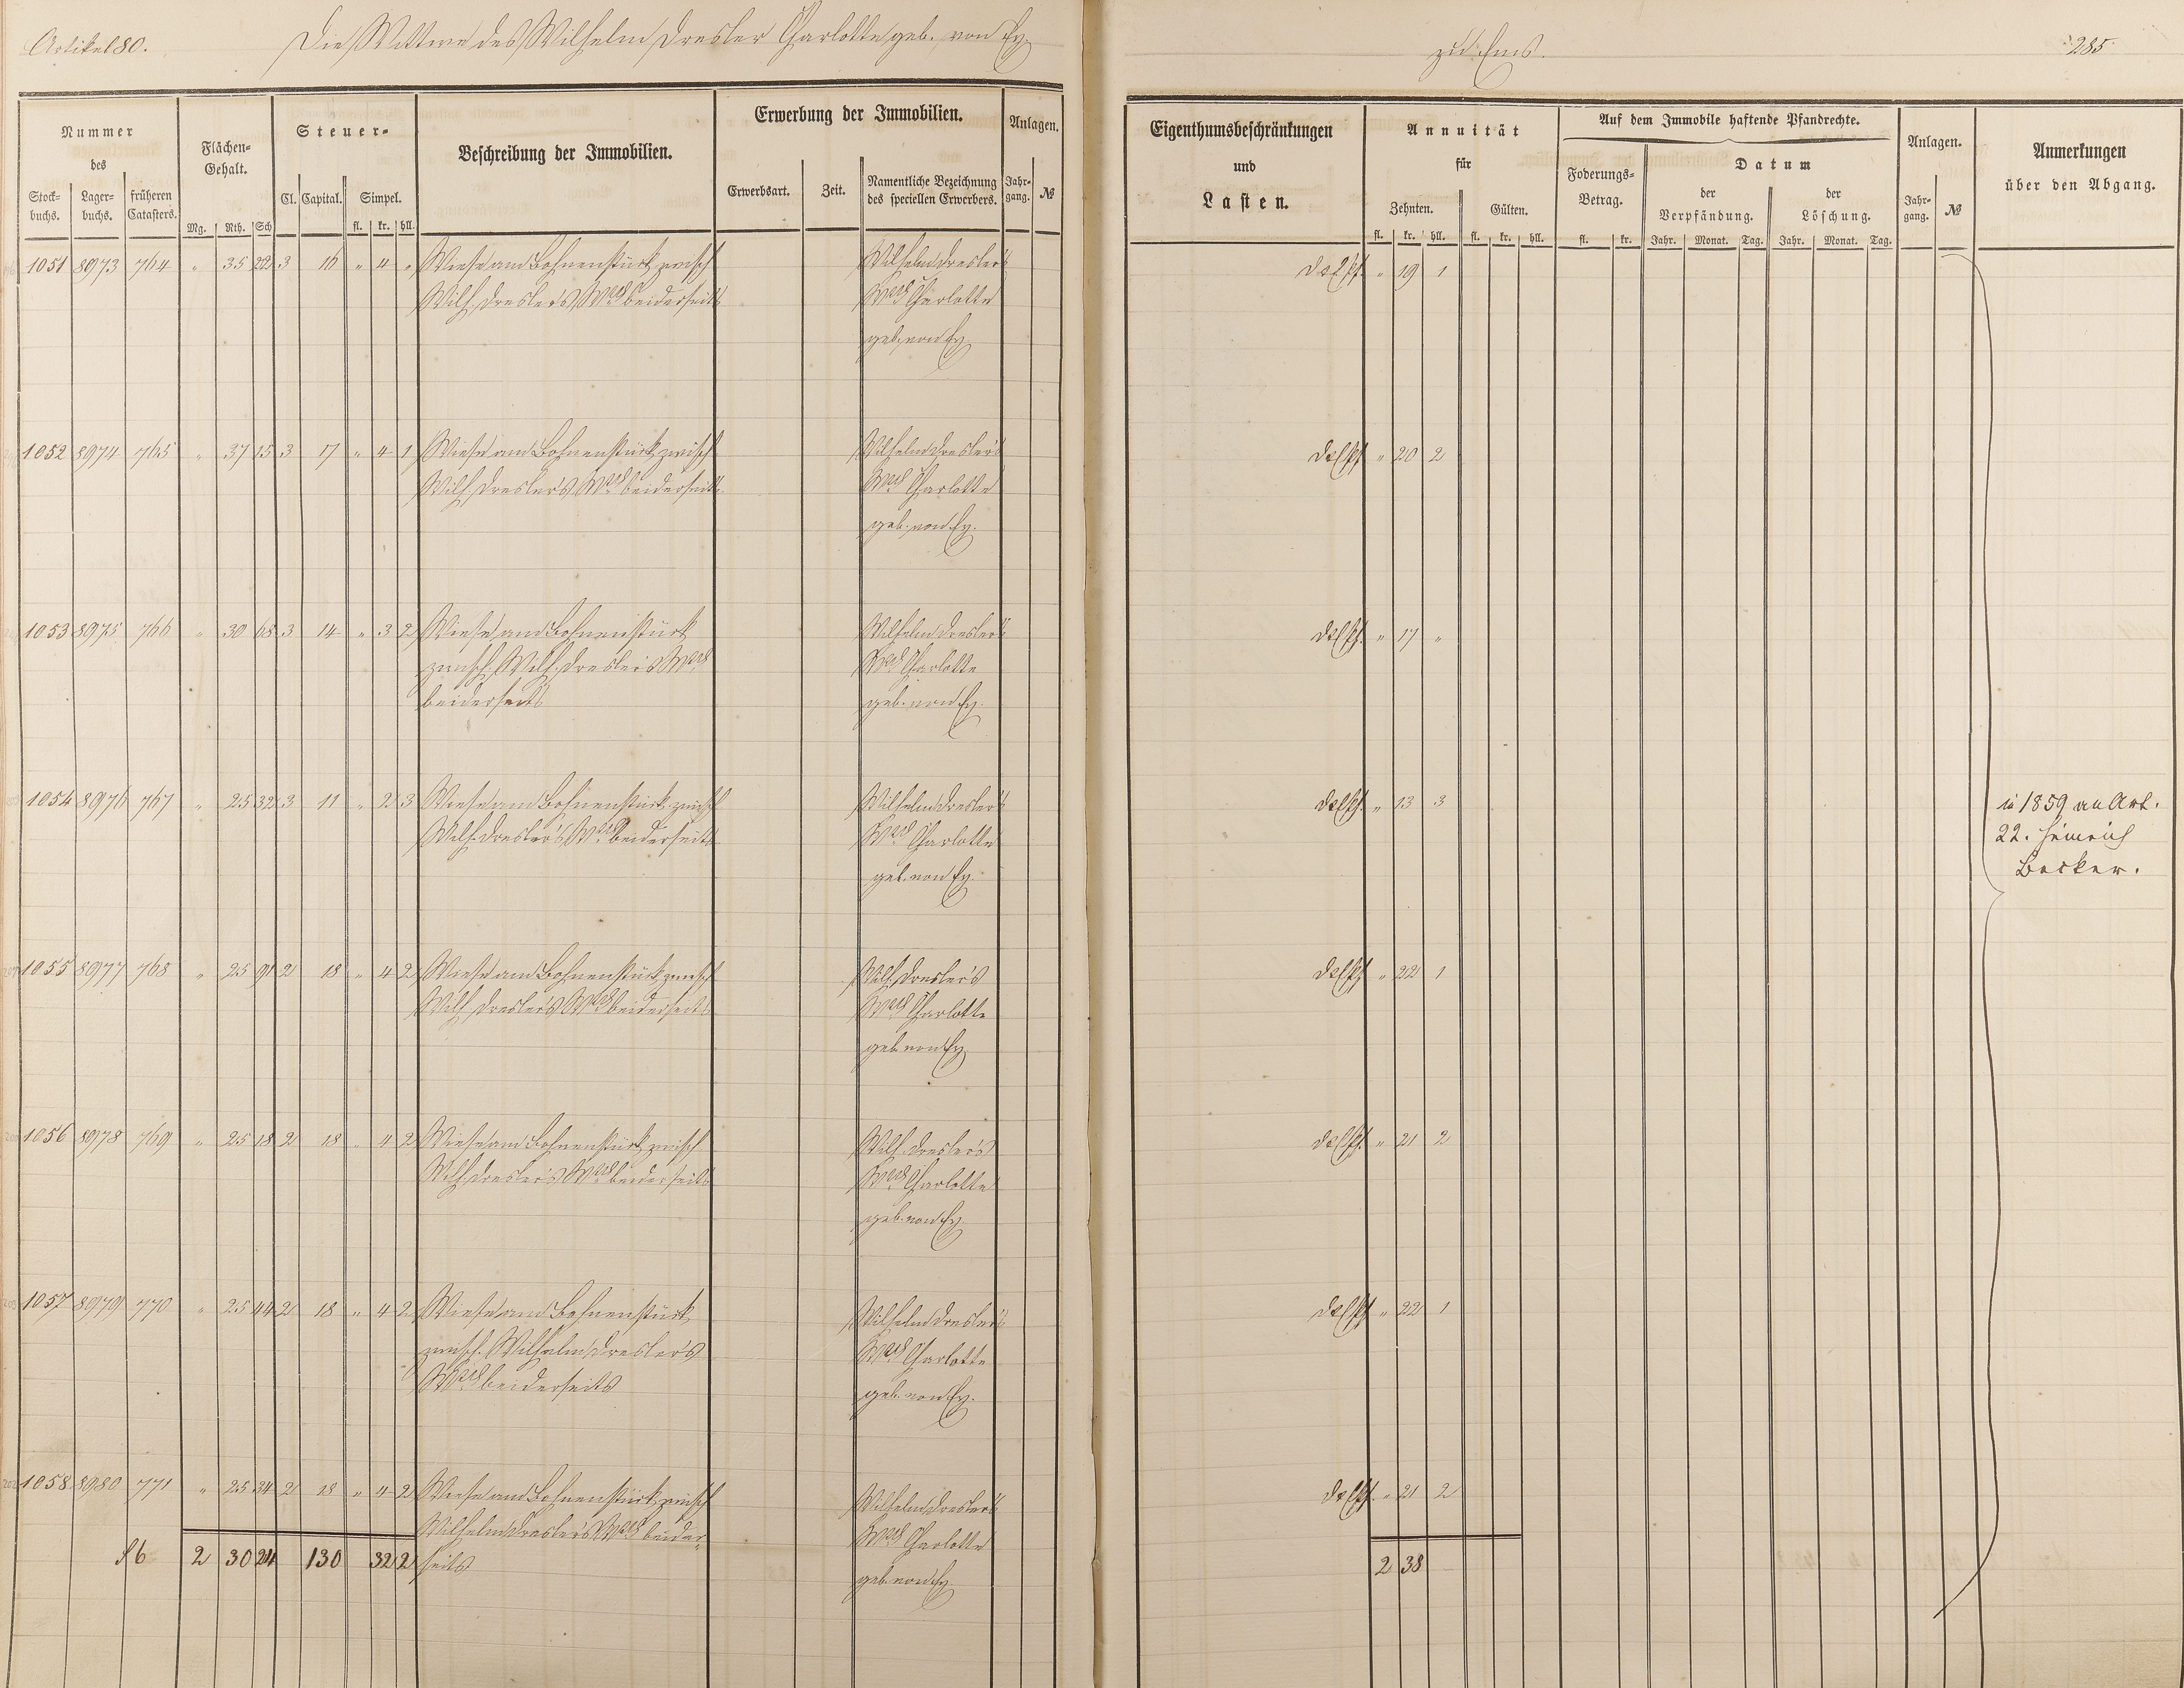 Artikel 80. Die Wittwe des Wilhelm Dresler Charlotte geb. von Ey. zu Ems. 285
Nummer des
Stockbuchs. Lagerbuchs. früheren Catasters.
Flächen-Gehalt.
Mg. Rth. Sch
Steuer-
Cl. Capital. Simpel.
fl. kr. hll.
Beschreibung der Immobilien.
Erwerbung der Immobilien.
Erwerbsart. Zeit. Namentliche Bezeichnung des speciellen Erwerbers.
Anlagen.
Jahrgang. №
Eigenthumsbeschränkungen
und
Lasten.
Annuität
für
Zehnten. Gülten.
fl. kr. hll. fl. kr. hll.
Auf dem Immobile haftende Pfandrechte.
Foderungs-Betrag.
fl. kr.
Datum
der Verpfändung. der Löschung.
Jahr. Monat. Tag. Jahr. Monat. Tag.
Anlagen.
Jahrgang. №
Anmerkungen
über den Abgang.
1051 8973 764 " 35 22 3 16 " 4 " Wiese am Bohnenstück zwisch Wilhelm Dresler's " 19 1
Wilh. Dresler's Wwe beiderseits Wwe Charlotte
geb. von Ey.
1052 8974 765 " 37 15 3 17 " 4 1 Wiese am Bohnenstück zwisch Wilhelm Dresler's " 20 2
Wilh. Dresler's Wwe beiderseits Wwe Charlotte
geb. von Ey.
1053 8975 766 " 30 68 3 14 " 3 2 Wiese am Bohnenstück Wilhelm Dresler's " 17 "
zwisch. Wilh. Dresler's Wwe Wwe Charlotte
beiderseits geb. von Ey.
1054 8976 767 " 25 32 3 11 " 2 3 Wiese am Bohnenstück zwisch Wilhelm Dresler's " 13 3 in 1859 an Art.
Wilh. Dresler's Wwe beiderseits Wwe Charlotte 22. Heinrich
geb. von Ey. Becker.
1055 8977 768 " 25 91 2 18 " 4 2 Wiese am Bohnenstück zwisch Wilh. Dresler's " 22 1
Wilh. Dresler's Wwe beiderseits Wwe Charlotte
geb. von Ey.
1056 8978 769 " 25 18 2 18 " 4 2 Wiese am Bohnenstück zwisch. Wilh. Dresler's " 21 2
Wilh. Dresler's Wwe beiderseits Wwe Charlotte
geb. von Ey.
1057 8979 770 " 25 44 2 18 " 4 2 Wiese am Bohnenstück Wilhelm Dresler's " 22 1
zwisch. Wilhelm Dresler's Wwe Charlotte
Wwe beiderseits geb. von Ey.
1058 8980 771 " 25 34 2 18 " 4 2 Wiese am Bohnenstück zwisch Wilhelm Dresler's " 21 2
Wilhelm Dresler's Wwe beider- Wwe Charlotte
2 30 24 130 32 2 seits geb. von Ey. 2 38